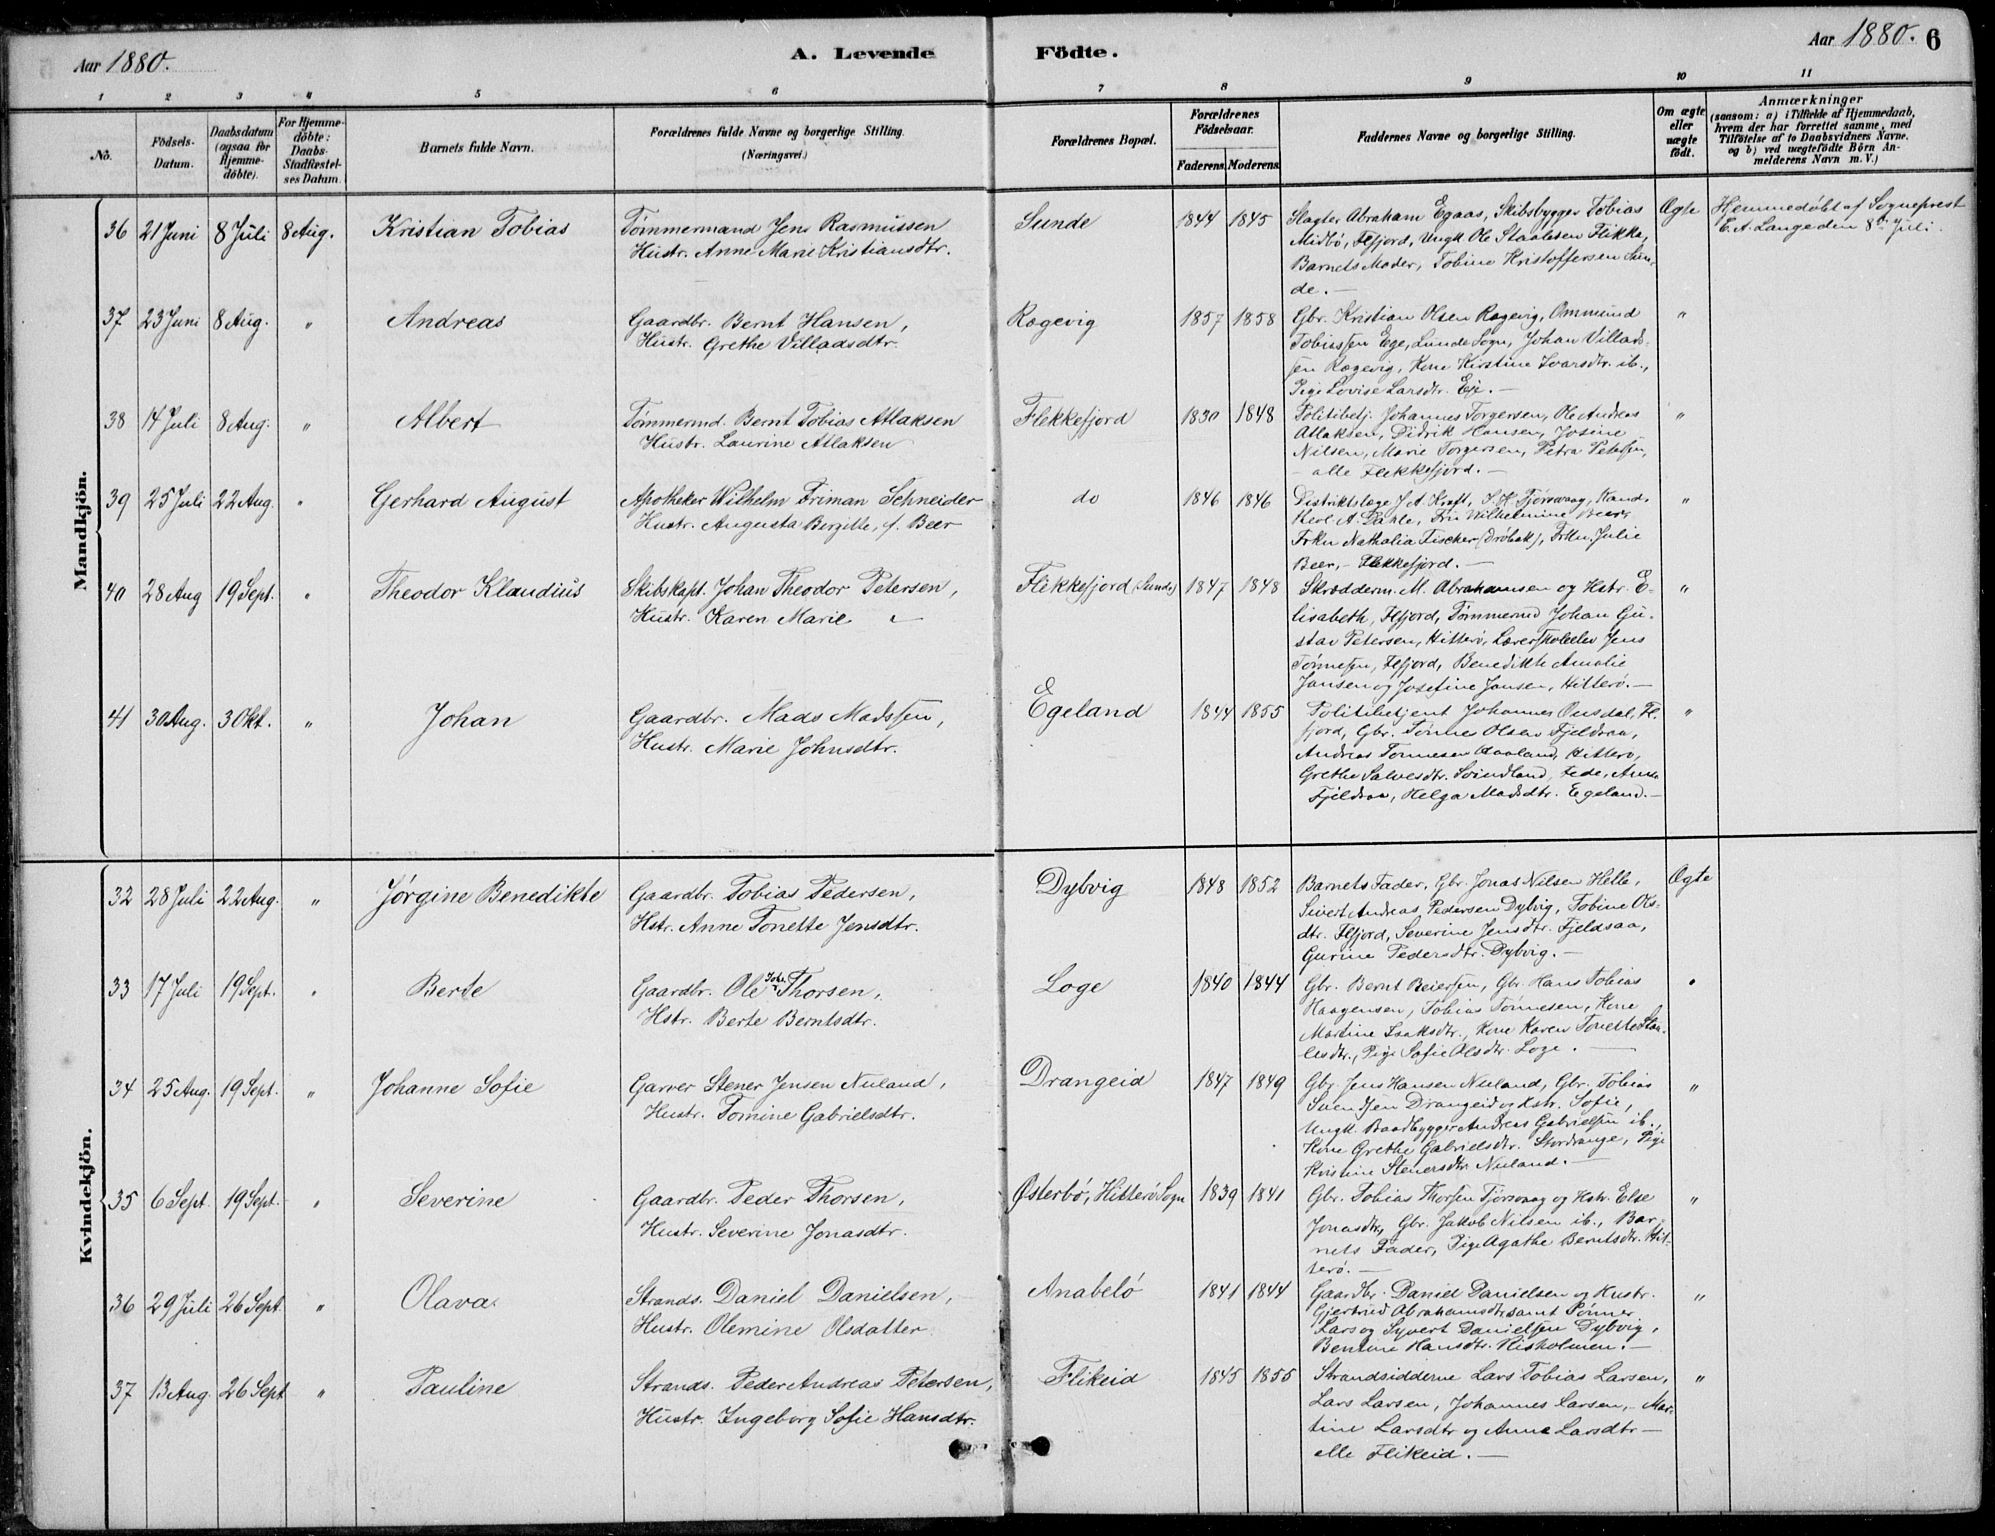 Aar 1880.
A. Levende Födte.
Aar 1880. 6
1 2 3 4 5 6 7 8 9 10 11
No.
Födsels-Datum.
Daabsdatum (ogsaa for Hjemme-döbte).
For Hjemme-döbte: Daabs-Stadfæstel-ses Datum.
Barnets fulde Navn.
Forældrenes fulde Navne og borgerlige Stilling.
(Næringsvei.)
Forældrenes Bopæl.
Forældrenes Födselsaar.
Faderens. Moderens.
Faddernes Navne og borgerlige Stilling.
Om ægte eller uægte födt.
Anmærkninger
(saasom: a) i Tilfælde af Hjemmedaab, hvem der har forrettet samme, med Tilföielse af to Daabsvidners Navne. og b) ved uægtefödte Börn An-melderens Navn m. V.)
Mandkjön.
36 21 Juni 8 Juli 8 Aug. Kristian Tobias
Tømmermand Jens Rasmussen
Hustr. Anne Marie Kristiansdtr.
Sunde 1844 1845
Slagter Abraham Egaas, Skibsbygger Tobias
Midbö, Flfjord, Ungk. Ole Staalesen Flikka,
Barnets Moder, Tobine Kristoffersen Sun-
de. —
Ægte
Hjemmedøbt af Sogneprest
E. A. Lange den 8de Juli.
37 23 Juni 8 Aug. " Andreas
Gaardbr. Bernt Hansen,
Hustr. Grethe Villadsdtr.
Rægevig 1857 1858
Gbr. Kristian Olsen Rægevig, Ommund
Tobiassen Ege, Lunde Sogn, Johan Villads-
sen Rægevig, Kone Kirstine Ivarsdtr. ib.,
Pige Lovise Larsdtr. Eie. —
"
38 14 Juli 8 Aug. " Albert
Tømmermd. Bernt Tobias Atlaksen
Hustr. Laurine Atlaksen
Flekkefjord 1830 1848
Politibetj. Johannes Torgersen, Ole Andreas
Atlaksen, Didrik Hansen, Josine
Nilsen, Marie Torgersen, Petra Petersen,
— alle Flekkefjord. —
"
39 25 Juli 22 Aug. " Gerhard August
Apotheker Wilhelm Friman Schneider
Hustr. Augusta Birgitte, f. Beer
do 1846 1846
Distriktslæge J. A. Kraft, S. H. Fjörsvaag, Kand.
theol. A. Dahle, Fru Wilhelmine Beer,
Frkn Nathalia Fischer (Dröbak), Frkn. Julie
Beer, - Flekkefjord. —
"
40 28 Aug 19 Sept. " Theodor Klaudius
Skibskapt. Johan Theodor Petersen,
Hustr. Karen Marie "
Flekkefjord (Sunde) 1847 1848
Skrædderm. M. Abrahamsen og Hstr. E-
lisabeth, Flfjord, Tömmermd Johan Gu-
stav Petersen, Hitterö, Lærerskoleelev Jens
Tönnesen, Flfjord, Benedikte Amalie
Jansen og Josefine Jansen, Hitterö. —
"
41 30 Aug. 3 Okt. " Johan
Gaardbr. Mads Madssen,
Hustr. Marie Johnsdtr.
Egeland 1844 1855
Politibetjent Johannes Ousdal, Fl.
fjord, Gbr. Tönnes Olsen Fjeldsaa,
Andreas Tönnesen Aaaland, Hitterö,
Grethe Salvesdtr. Svindland, Fede, Anne
Fjeldsaa, Helga Madsdtr. Egeland. —
"
Kvindekjön.
32 28 Juli 22 Aug. " Jørgine Benedikte
Gaardbr. Tobias Pedersen,
Hstr. Anne Tonette Jensdtr.
Dybvig 1848 1852
Barnets Fader, Gbr. Jonas Nilsen Helle,
Sivert Andreas Pedersen Dybvig, Tobine Ols-
dtr. Flfjord, Severine Jensdtr. Fjeldsaa,
Gurine Pedersdtr. Dybvig. —
Ægte
33 17 Juli 19 Sept. " Berte
Gaardbr. Ole Thorsen,
Hstr. Berte Berntsdtr.
Loge 1840 1844
Gbr. Bernt Beiersen, Gbr. Hans Tobias
Haagensen, Tobias Tönnesen, Kone
Martine Isaksdtr., Kone Karen Tonette Staa-
lesdtr., Pige Sofie Olsdtr. Loge. —
"
34 25 Aug. 19 Sept. " Johanne Sofie
Garver Stener Jensen Nuland,
Hustr. Tomine Gabrielsdtr.
Drangeid 1847 1849
Gbr. Jens Hansen Nuland, Gbr. Tobias
Svendsen Drangeid og Hstr. Sofie,
Ungk. Baadbygger Andreas Gabrielsen ib.,
Kone Grethe Gabrielsdtr. Stordrange, Pige
Kristine Stenersdtr. Nuland. —
"
35 6 Sept. 19 Sept. " Severine
Gaardbr. Peder Thorsen,
Hustr. Severine Jonasdtr.
Østerbö, Hitterö Sogn 1839 1841
Gbr. Tobias Thorsen Fjörsvaag og Hstr. Else
Jonasdtr., Gbr. Jakob Nilsen ib., Bar-
nets Fader, Pige Agathe Berntsdtr. Hit-
terö. —
"
36 29 Juli 26 Sept. " Olava
Strands. Daniel Danielsen,
Hustr. Olemine Olsdatter
Anabelö 1841 1844
Gaardbr. Daniel Danielsen og Hustr.
Gjertrud Abrahamsdtr. samt Sönner
Lars og Syvert Danielsen Dybvig,
Bentine Hansdtr. Nisholmen. —
"
37 13 Aug. 26 Sept " Pauline
Strands. Peder Andreas Petersen,
Hustr. Ingeborg Sofie Hansdtr.
Flikeid 1845 1855
Strandsidderne Lars Tobias Larsen,
Lars Larsen, Johannes Larsen, Mar-
tine Larsdtr og Anne Larsdtr —
alle Flikeid. —
"